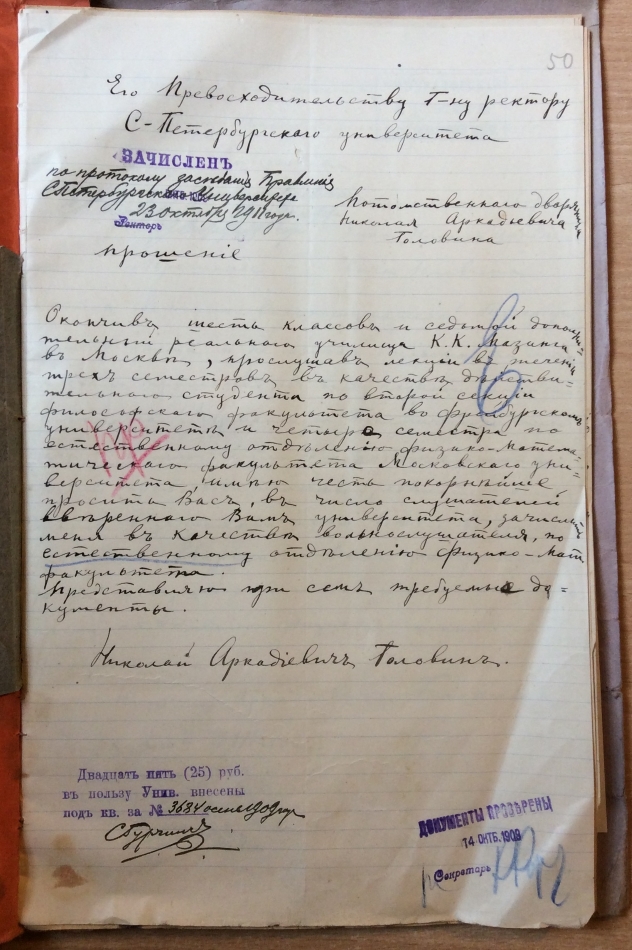 50
Его Превосходительству Г-ну ректору
С-Петербургскаго университета
ЗАЧИСЛЕНЪ
по протоколу заседанія Правленія
С.Петербургскаго Университета
23 октября
Ректоръ
Потомственного дворянина
Николая Аркадьевича
Головина
прошеніе
Окончивъ шесть классовъ и седьмой дополни-
тельный реального училища К.К. Мазинга
въ Москвѣ, прослушавъ лекціи въ теченіи
трехъ семестровъ въ качествѣ дѣйстви-
тельного студента по второй секціи
философского факультета во Фрейбургскомъ
университетѣ и четыре семестра по
естественному отдѣленію физико-матема-
тическаго факультета Московскаго уни-
верситета, имѣю честь покорнѣйше
просить Васъ, въ число слушателей
ввѣренного Вамъ университета, зачислить
меня въ качествѣ вольнослушателя, по
естественному отдѣленію физико-мат.
факультета.
Представляю при семъ требуемые до-
кументы.
Николай Аркадіевичъ Головинъ.
Двадцать пять (25) руб.
въ пользу Унив. внесены
подъ кв. за № 3684 осень 1909 году
ДОКУМЕНТЫ ПРОВѢРЕНЫ
14 ОКТЬ. 1909
Секретарь